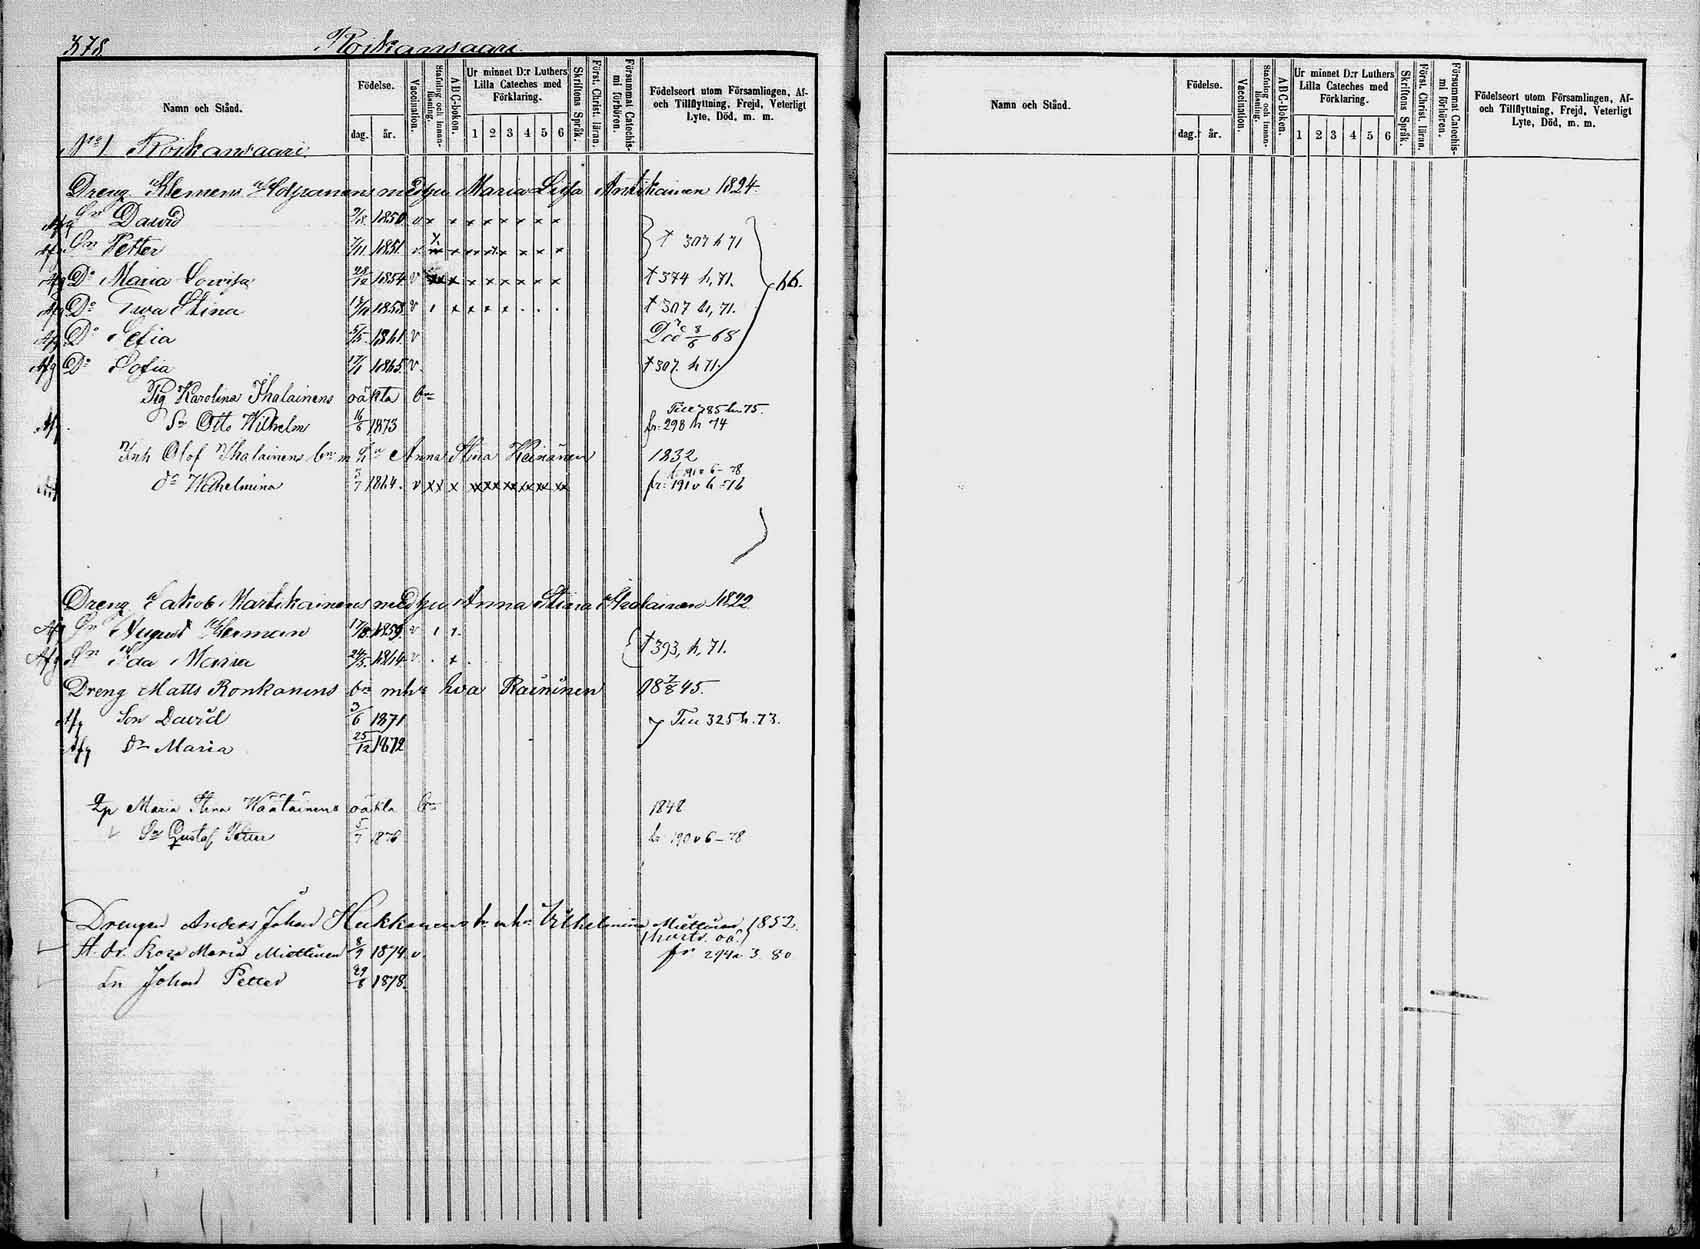 378. Roikansaari.
Namn och Stånd.
Födelse.
dag. år.
Vaccination.
Stafning och innan-läsning.
ABC-boken.
Ur minnet D:r Luthers Lilla Cateches med Förklaring.
1 2 3 4 5 6
Skriftens Språk.
Först. Christ. läran.
Försummat Catechis-mi förhören.
Födelseort utom Församlingen, Af- och Tillflyttning, Frejd, Veterligt Lyte, Död, m. m.
No 1 Roikansaari
Dreng Klemens med hu Maria Lisa Antikainen 1824
Afg Sn David 1850 v x x x x x x x x
Afg Sn Petter 7/11 1851 v x x x x x x x † 307 h 71
Afg Dr Maria Lovisa 28/12 1854 v x x x x x x x x † 374 h, 71.
Afg Dr Ewa Stina 17/11 1858 v 1 x x x x . . . † 307 h, 71.
Afg Dr Sefia 5/5 1861 v Död 8/6 68
Afg Dr Sofia 17/1 1865 v. † 307. h 71.
Pig Karolina Ihalainens oäkta bn
Afg Sn Otto Wilhelm 16/6 1873 Till 785 h 75. fr. 298 h 74
Inh Olof Ihalainens bn m h Anna Stina Heinänen 1832
dr Wilhelmina 3/7 1864. v x x x x x x x x x fr. 191 v h 76
Dreng Jakob Martikainens med hu Anna Stina Ihalainen 1822
Afg Sn August Herman 17/8 1859 v 1 1.
Afg Dr Ida Maria 24/5 1864 v . x . † 393, h, 71.
Dreng Matts Ronkanens bn m h Eva Räininen 18 7/8 45.
Afg Son David 3/6 1871 Till 325 h. 73.
Afg Dr Maria 25/12 1872
Maria Stina Wäätäinens oäkta bn 1848
Sn Gustaf Petter 5/7 1876 fr 190 v 6-78
Drengen Anders Johan Hukkanens bn m h Wilhelmina Miettinen 1852.
(hustr. oä.)
H. dr. Rosa Maria Miettinen 8/9 1874. v. fr 294a 3 80
Sn Johan Petter 29/8 1878.
Namn och Stånd.
Födelse.
dag. år.
Vaccination.
Stafning och innan-läsning.
ABC-boken.
Ur minnet D:r Luthers Lilla Cateches med Förklaring.
1 2 3 4 5 6
Skriftens Språk.
Först. Christ. läran.
Försummat Catechis-mi förhören.
Födelseort utom Församlingen, Af- och Tillflyttning, Frejd, Veterligt Lyte, Död, m. m.